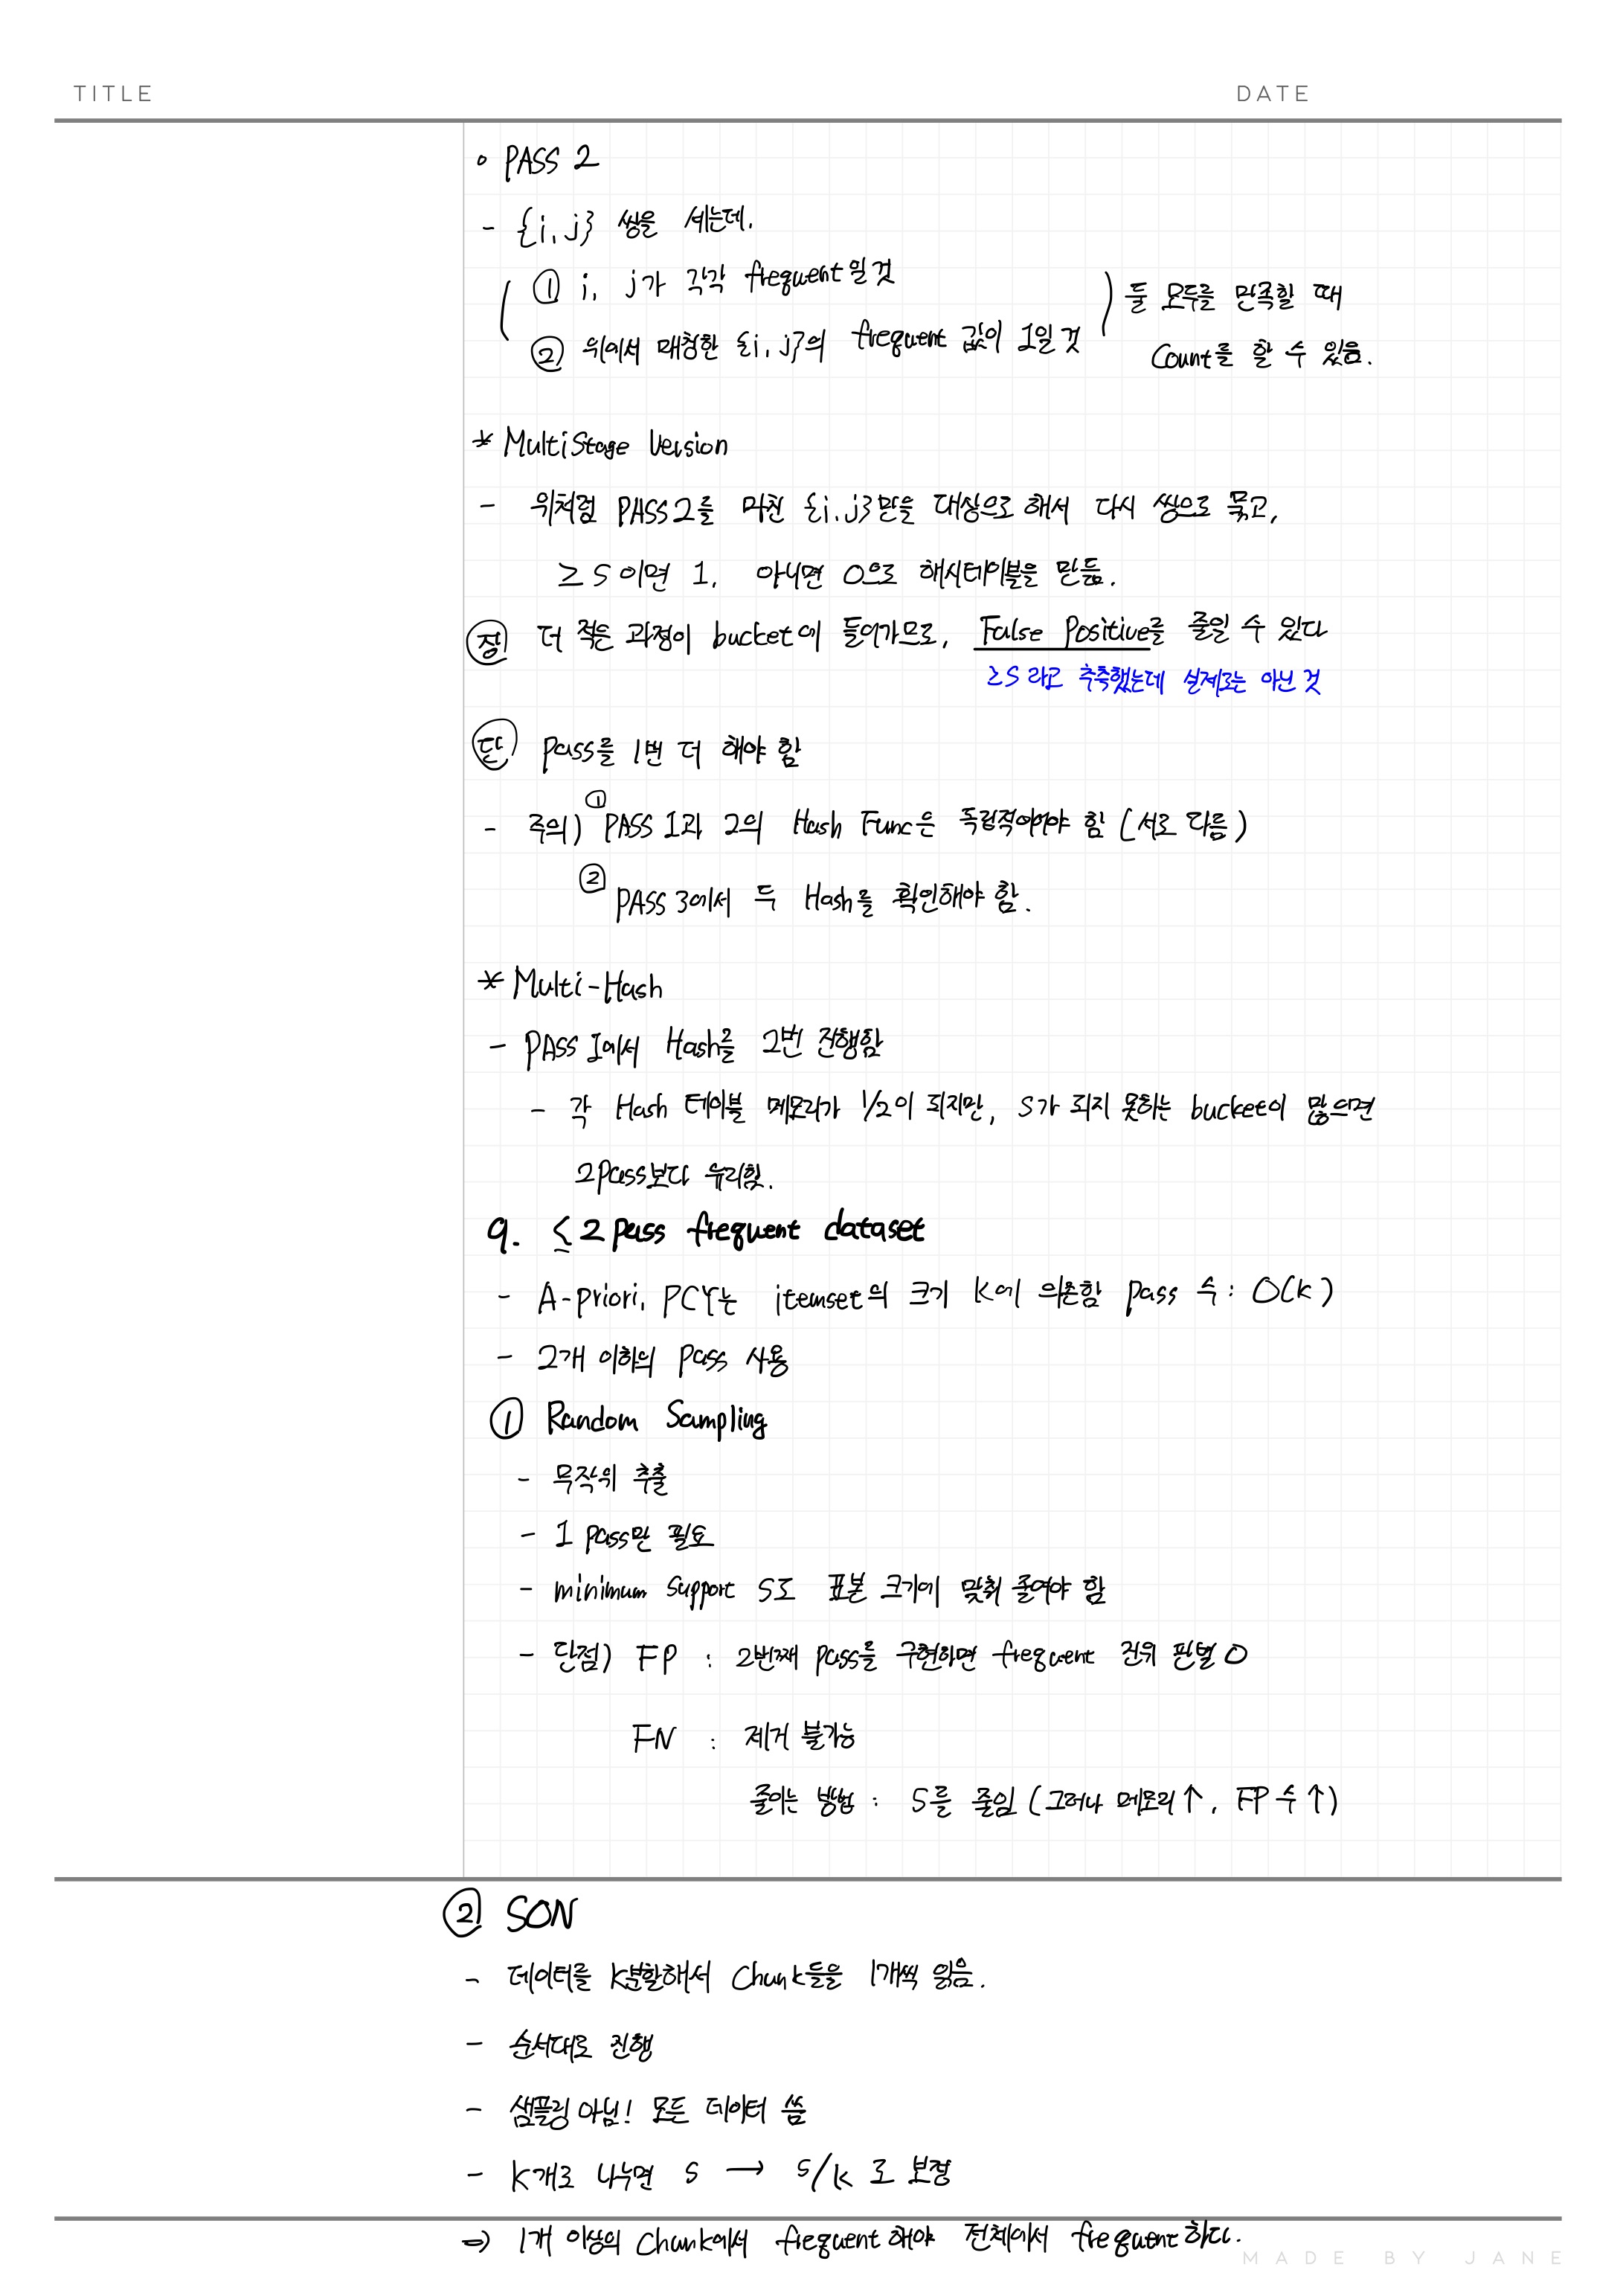 TITLE DATE
° PASS 2
- {i, j} 쌍을 세는데,
① i, j가 각각 frequent일 것
② 위에서 매칭한 {i, j}의 frequent 값이 1일 것
둘 모두를 만족할 때
Count를 할 수 있음.
* MultiStage Version
- 위처럼 PASS 2를 마친 {i, j}만을 대상으로 해서 다시 쌍으로 묶고,
≥ S 이면 1, 아니면 0으로 해시테이블을 만듦.
장 더 적은 과정이 bucket에 들어가므로, False Positive를 줄일 수 있다
≥S 라고 추측했는데 실제로는 아닌 것
단 Pass를 1번 더 해야 함
- 주의) ① PASS 1과 2의 Hash Func은 독립적이어야 함 (서로 다름)
② PASS 3에서 두 Hash를 확인해야 함.
* Multi-Hash
- PASS 1에서 Hash를 2번 진행함
- 각 Hash 테이블 메모리가 1/2이 되지만, S가 되지 못하는 bucket이 많으면
2Pass보다 유리함.
9. ≤ 2 pass frequent dataset
- A-priori, PCY는 itemset의 크기 K에 의존함 pass 수 : O(k)
- 2개 이하의 Pass 사용
① Random Sampling
- 무작위 추출
- 1 pass만 필요
- minimum support S도 표본 크기에 맞춰 줄여야 함
- 단점) FP : 2번째 pass를 구현하면 frequent 진위 판별 O
FN : 제거 불가능
줄이는 방법 : S를 줄임 (그러나 메모리↑, FP 수↑)
② SON
- 데이터를 K분할해서 Chunk들을 1개씩 읽음.
- 순서대로 진행
- 샘플링 아님! 모든 데이터 씀
- K개로 나누면 S → S/k 로 보정
⇒ 1개 이상의 Chunk에서 frequent해야 전체에서 frequent하다.
MADE BY JANE